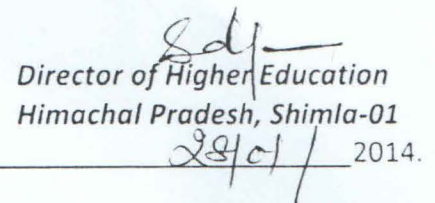 Sd/-
Director of Higher Education
Himachal Pradesh, Shimla-01
28/01/ 2014.